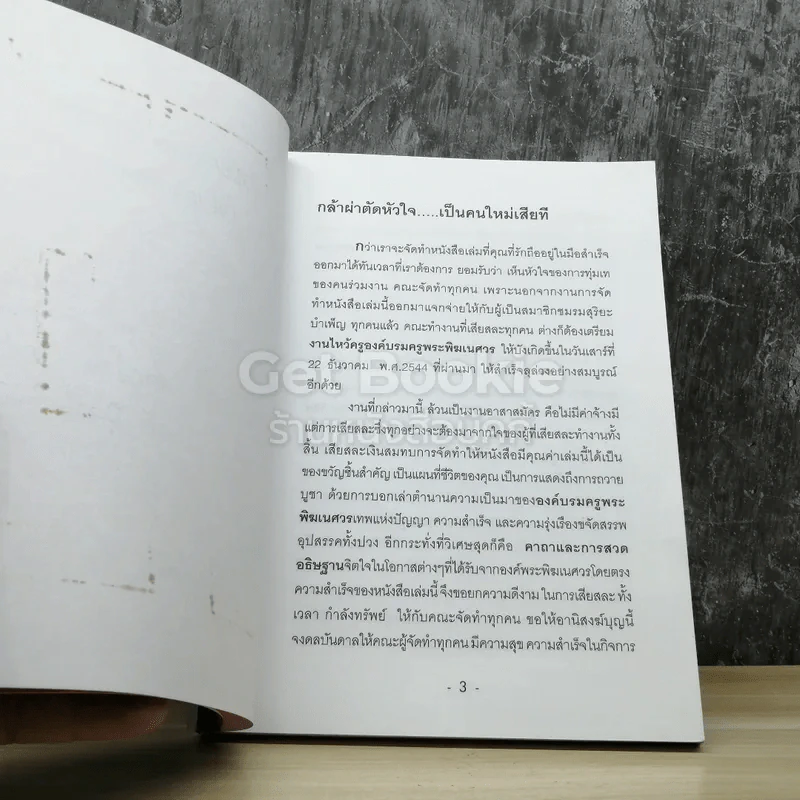 กล้าผ่าตัดหัวใจ.....เป็นคนใหม่เสียที
กว่าเราจะจัดทำหนังสือเล่มที่คุณที่รักถืออยู่ในมือสำเร็จ
ออกมาได้ทันเวลาที่เราต้องการ ยอมรับว่า เห็นหัวใจของการทุ่มเท
ของคนร่วมงาน คณะจัดทำทุกคน เพราะนอกจากงานการจัด
ทำหนังสือเล่มนี้ออกมาแจกจ่ายให้กับผู้เป็นสมาชิกชมรมสุริยะ
บำเพ็ญ ทุกคนแล้ว คณะทำงานที่เสียสละทุกคน ต่างก็ต้องเตรียม
งานไหว้ครูองค์บรมครูพระพิฆเนศวร ให้บังเกิดขึ้นในวันเสาร์ที่
22 ธันวาคม พ.ศ.2544 ที่ผ่านมา ให้สำเร็จลุล่วงอย่างสมบูรณ์
อีกด้วย
Get Bookie
ร้านหนังสือมือสอง
งานที่กล่าวมานี้ ล้วนเป็นงานอาสาสมัคร คือไม่มีค่าจ้างมี
แต่การเสียสละซึ่งทุกอย่างจะต้องมาจากใจของผู้ที่เสียสละทำงานทั้ง
สิ้น เสียสละเงินสมทบการจัดทำให้หนังสือมีคุณค่าเล่มนี้ได้เป็น
ของขวัญชิ้นสำคัญ เป็นแผนที่ชีวิตของคุณ เป็นการแสดงถึงการถวาย
บูชา ด้วยการบอกเล่าตำนานความเป็นมาขององค์บรมครูพระ
พิฆเนศวรเทพแห่งปัญญา ความสำเร็จ และความรุ่งเรืองขจัดสรรพ
อุปสรรคทั้งปวง อีกกระทั่งที่วิเศษสุดก็คือ คาถาและการสวด
อธิษฐานจิตใจในโอกาสต่างๆที่ได้รับจากองค์พระพิฆเนศวรโดยตรง
ความสำเร็จของหนังสือเล่มนี้ จึงขอยกความดีงาม ในการเสียสละ ทั้ง
เวลา กำลังทรัพย์ ให้กับคณะจัดทำทุกคน ขอให้อานิสงฆ์บุญนี้
จงดลบันดาลให้คณะผู้จัดทำทุกคน มีความสุข ความสำเร็จในกิจการ
- 3 -